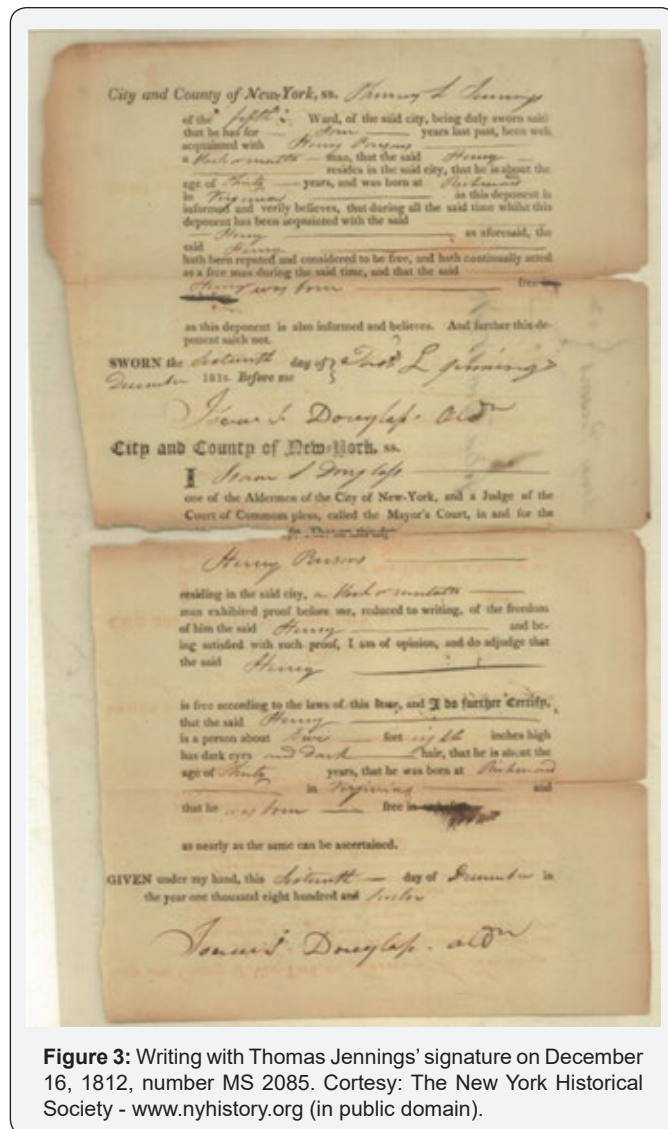 City and County of New-York, ss. Thomas L Jennings
of the fifth Ward, of the said city, being duly sworn saith
that he has for four years last past, been well
acquainted with Henry Parsons
a man, that the said Henry
resides in the said city, that he is about the
age of thirty years, and was born at Richmond
in Virginia as this deponent is
informed and verily believes, that during all the said time whilst this
deponent has been acquainted with the said
Henry as aforesaid, the
said Henry
hath been reputed and considered to be free, and hath continually acted
as a free man during the said time, and that the said
Henry was born free
as this deponent is also informed and believes. And further this de-
ponent saith not.
SWORN the Sixteenth day of Thos L Jennings
December 1812. Before me
Isaac S Douglass. Aldn
City and County of New-York, ss.
I Isaac S Douglass
one of the Aldermen of the City of New-York, and a Judge of the
Court of Common pleas, called the Mayor's Court, in and for the
Henry Parsons
residing in the said city, a
man exhibited proof before me, reduced to writing, of the freedom
of him the said Henry and be-
ing satisfied with such proof, I am of opinion, and do adjudge that
the said Henry
is free according to the laws of this State, and I do further Certify,
that the said Henry
is a person about five feet eight inches high
has dark eyes and dark hair, that he is about the
age of thirty years, that he was born at Richmond
in Virginia and
that he was born free
as nearly as the same can be ascertained.
GIVEN under my hand, this Sixteenth day of December in
the year one thousand eight hundred and twelve
Isaac S. Douglass. Aldn
Figure 3: Writing with Thomas Jennings' signature on December
16, 1812, number MS 2085. Cortesy: The New York Historical
Society - www.nyhistory.org (in public domain).